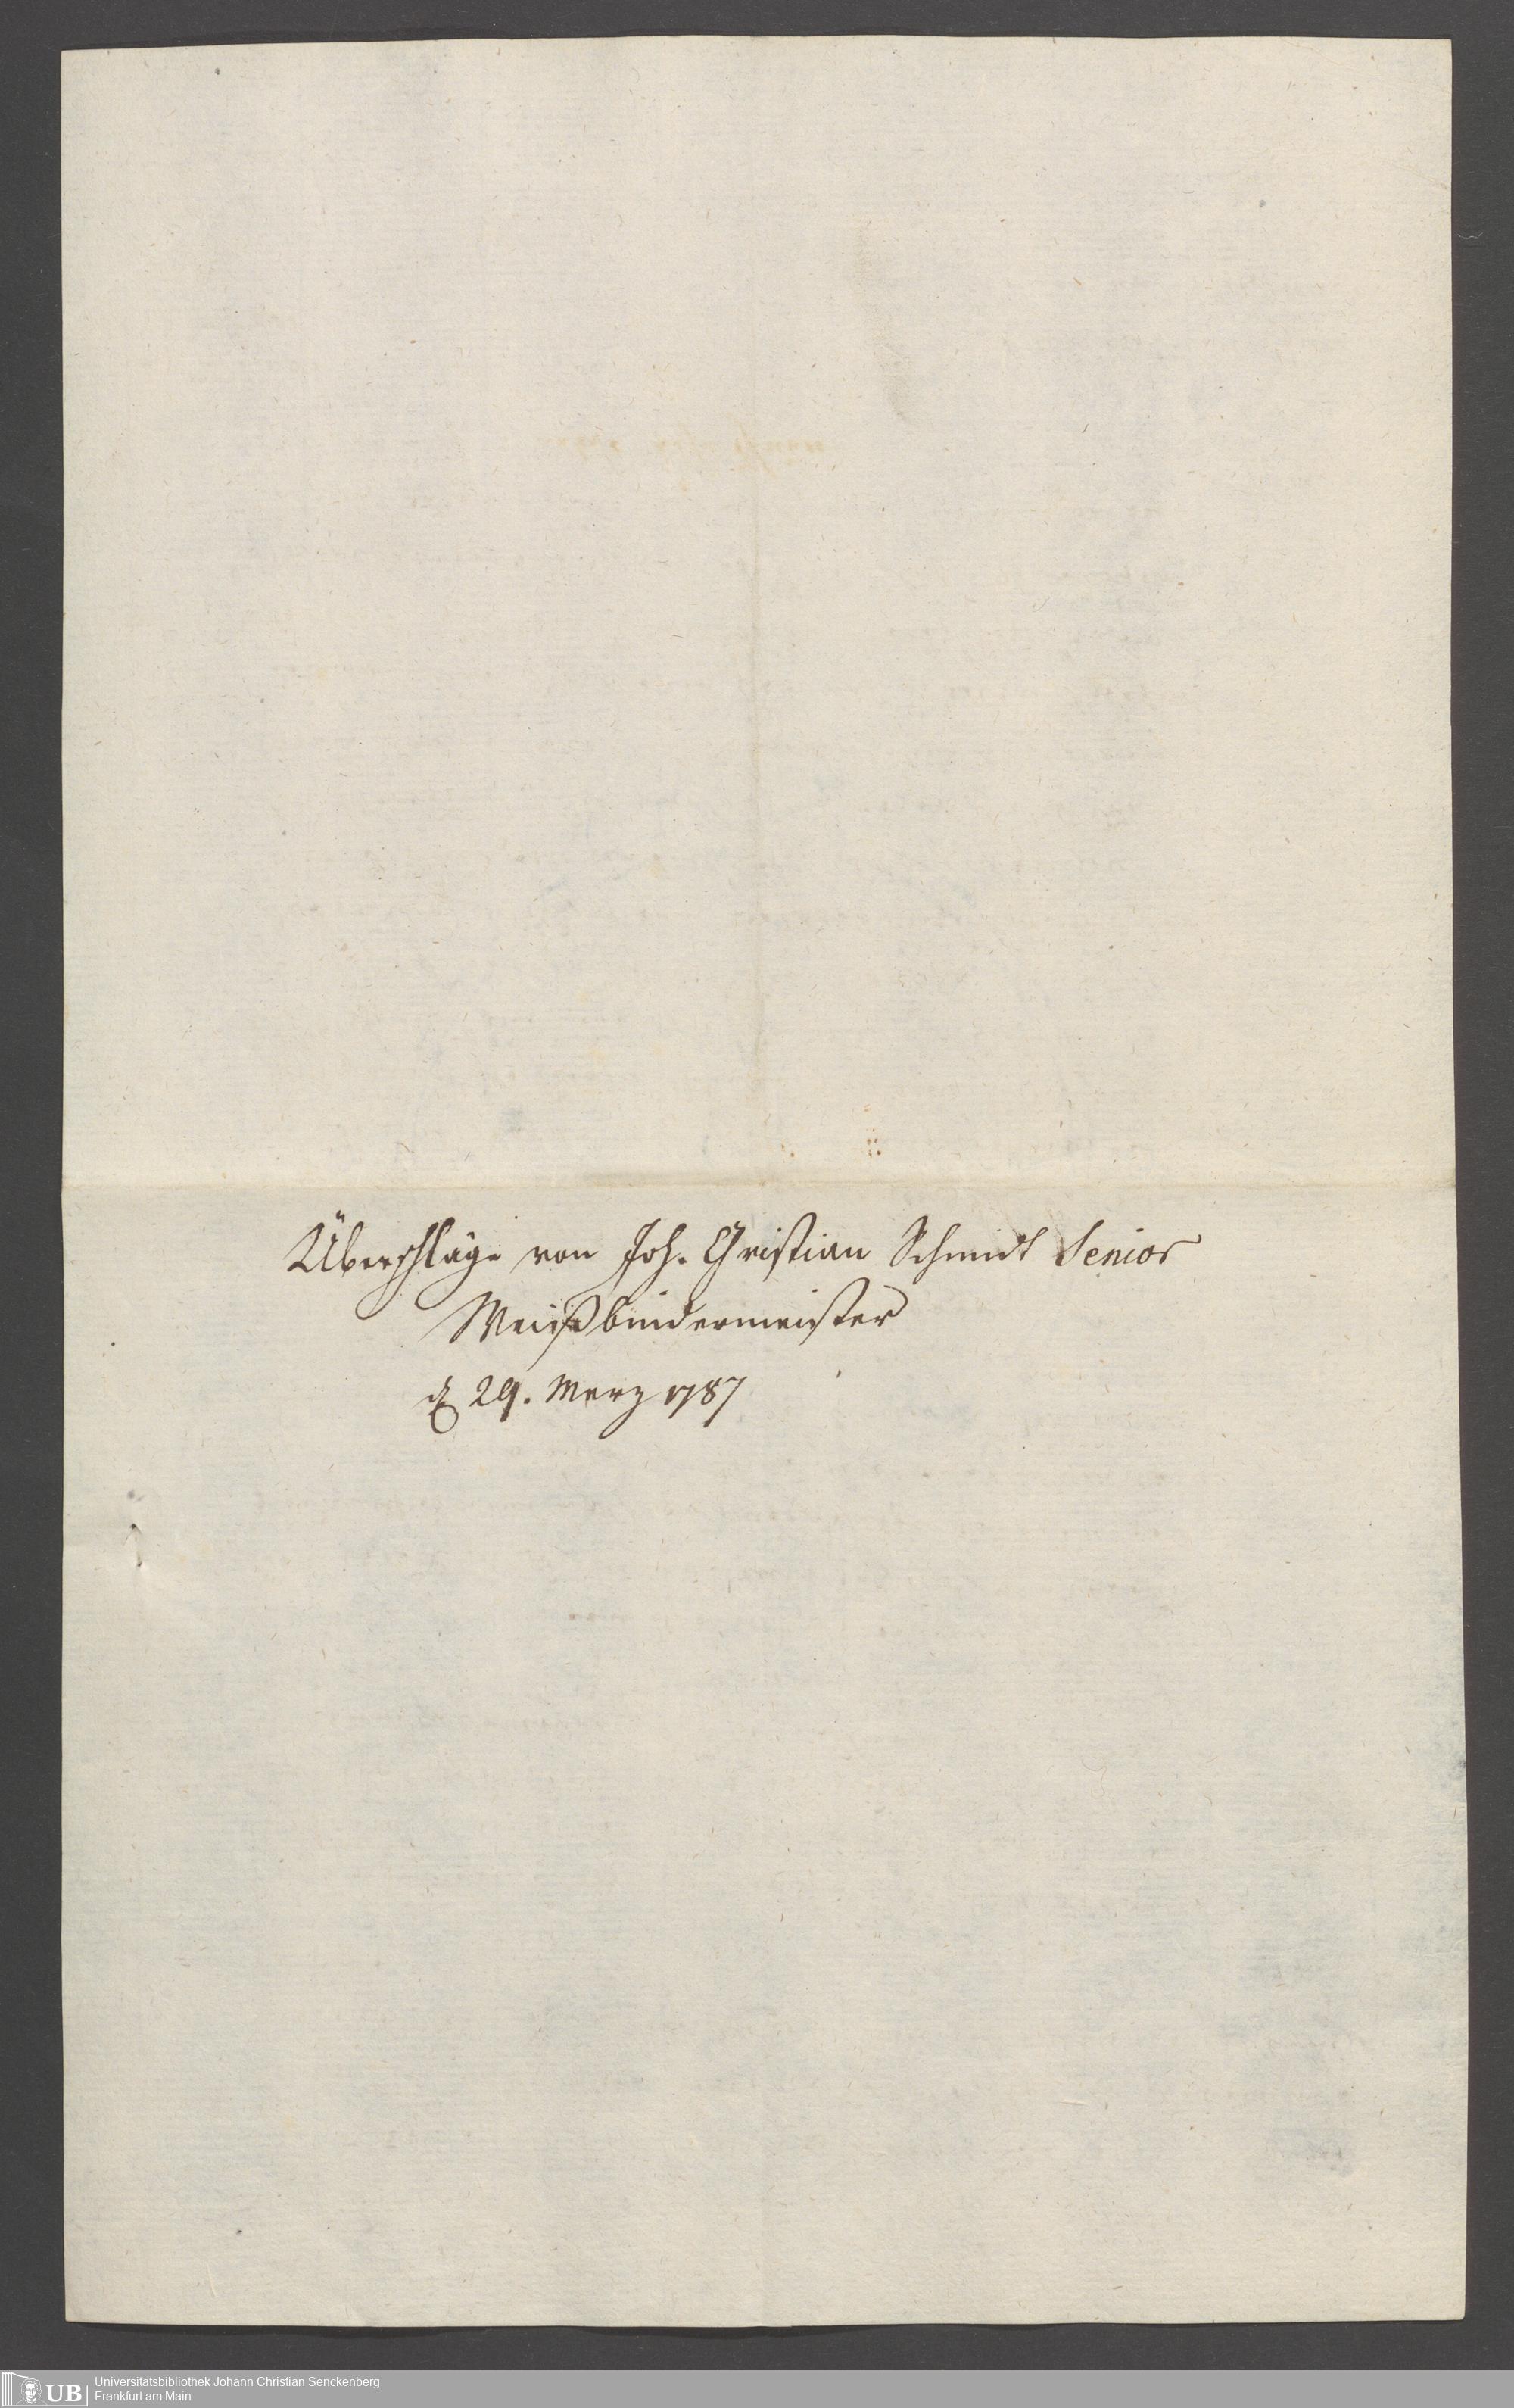 Überschläge von Joh. Christian Schmidt Senior
Weißbindermeister
d 29. Merz 1787
UB
Universitätsbibliothek Johann Christian Senckenberg
Frankfurt am Main